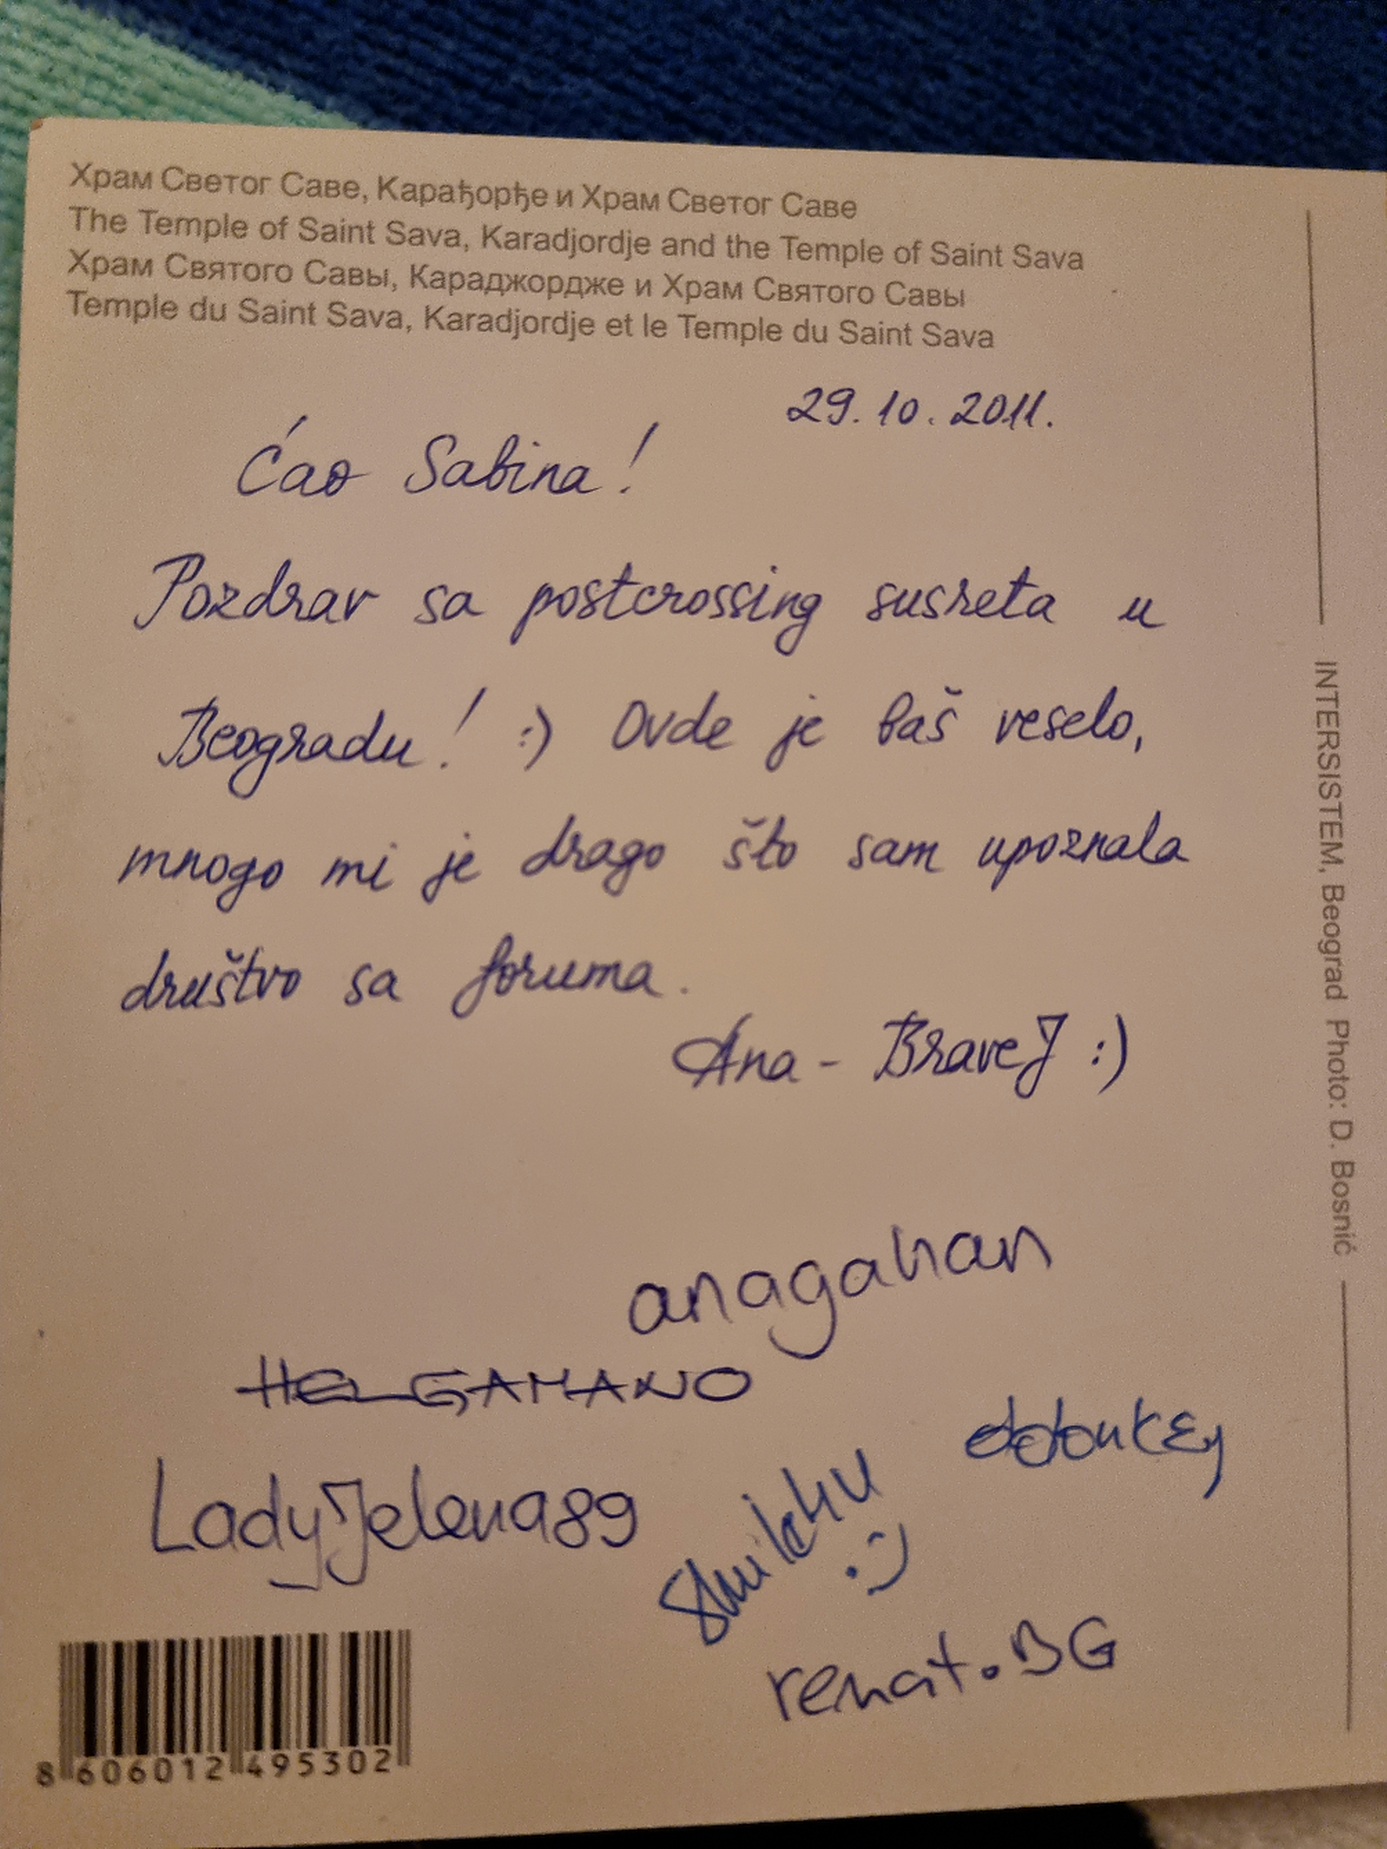 Храм Светог Саве, Карађорђе и Храм Светог Саве
The Temple of Saint Sava, Karadjordje and the Temple of Saint Sava
Храм Святого Савы, Караджордже и Храм Святого Савы
Temple du Saint Sava, Karadjordje et le Temple du Saint Sava
29.10.2011.
Ćao Sabina!
Pozdrav sa postcrossing susreta u
Beogradu! :) Ovde je baš veselo,
mnogo mi je drago što sam upoznala
društvo sa foruma.
Ana - BraveJ :)
anagahan
HELGAMANO
LadyJelena89
:)
renat.BG
8 606012 495302
INTERSISTEM, Beograd Photo: D. Bosnić